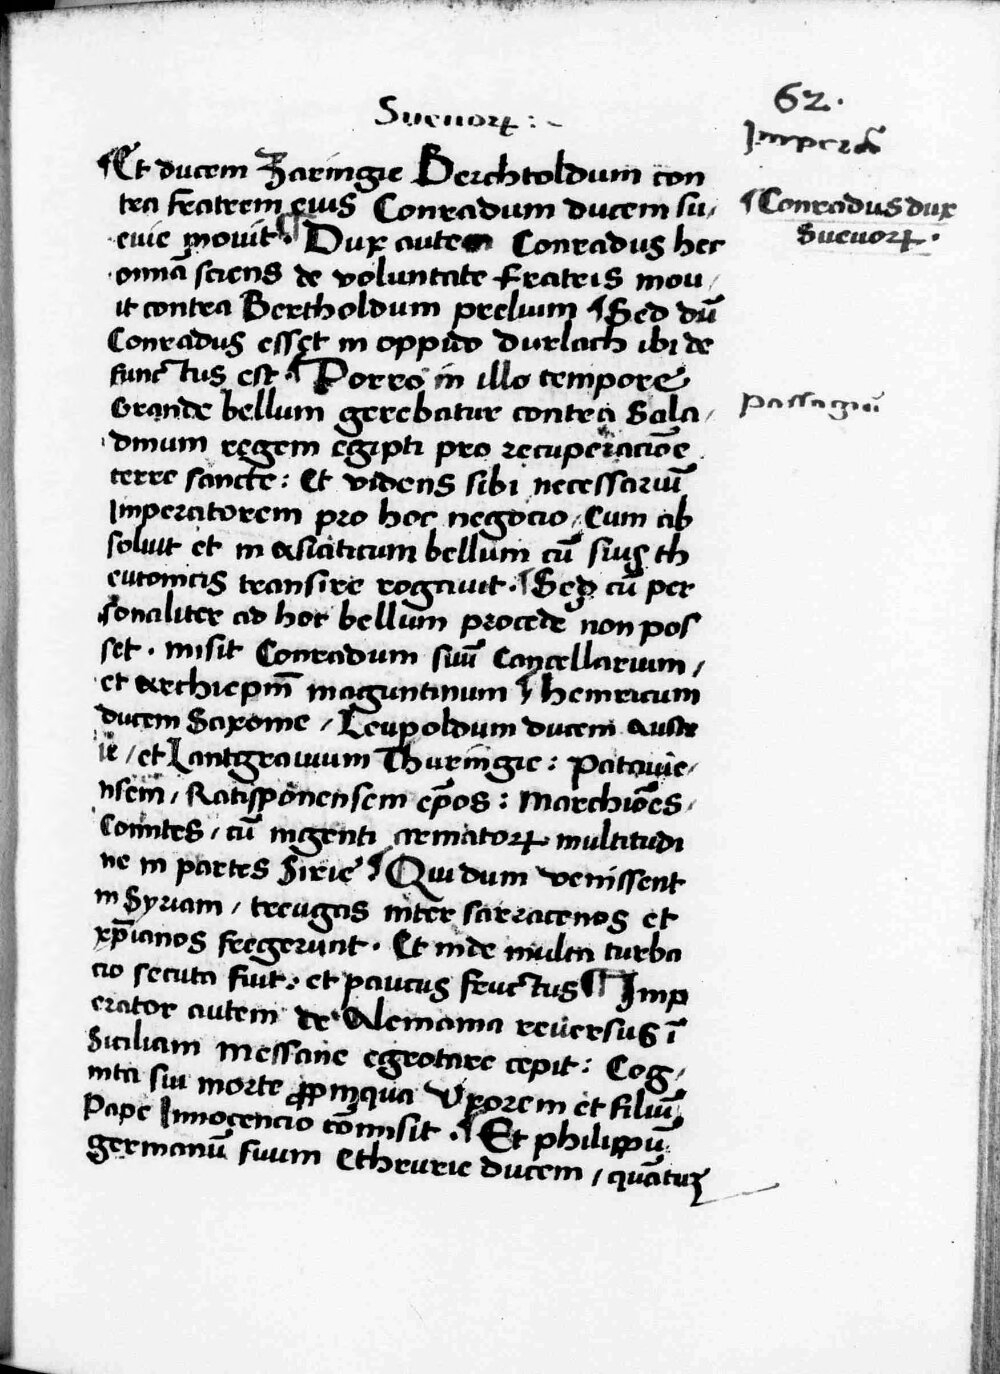 Sueuoꝝ :~
62.
Imperā
¶Et ducem Zaringie Berchtoldum con
tra fratrem eius Conradum ducem su/
¶Conradus dux
Sueuoꝝ.
euie mouit. ¶Dux autem Conradus hec
omnā sciens de voluntate fratris mou/
it contra Bertholdum prelium ¶Sed dū
Conradus esset in oppido durlach ibi de
functus est ¶Porro in illo tempore
grande bellum gerebatur contra Sala/
passagiū
dinum regem egipti pro recuperacione
terre sancte : Et videns sibi necessariū
Imperatorem pro hoc negocio, Cum ab
soluit et in asiaticum bellum cū suis th
eutonicis transire rogauit. ¶Sed cū per
sonaliter ad hoc bellum procede non pos
set. misit Conradum suū Cancellarium /
et archiepm̄ maguntinum ¶ henricum
ducem Saxonie / Leupoldum ducem Austr
ie / et Lantgrauium Thuringie : patauie/
nsem / Ratisponensem ep̄os : marchiōes /
Comites / cū ingenti armatoꝝ multitudi
ne in partes Sirie ¶Qui dum venissent
in Syriam / treugas inter sarracenos et
xp̄ianos fregerunt. Et inde multa turba
cio secuta fuit : et paucus fructus ¶Imp
erator autem de Alemania reuersus ī
Siciliam messane egrotare cepit : Cog/
nita sui morte ꝓpinqua Vxorem et filiū
Pape Innocencio cōmisit. ¶Et philippū
germanū suum Ethrurie ducem / quātuꝫ